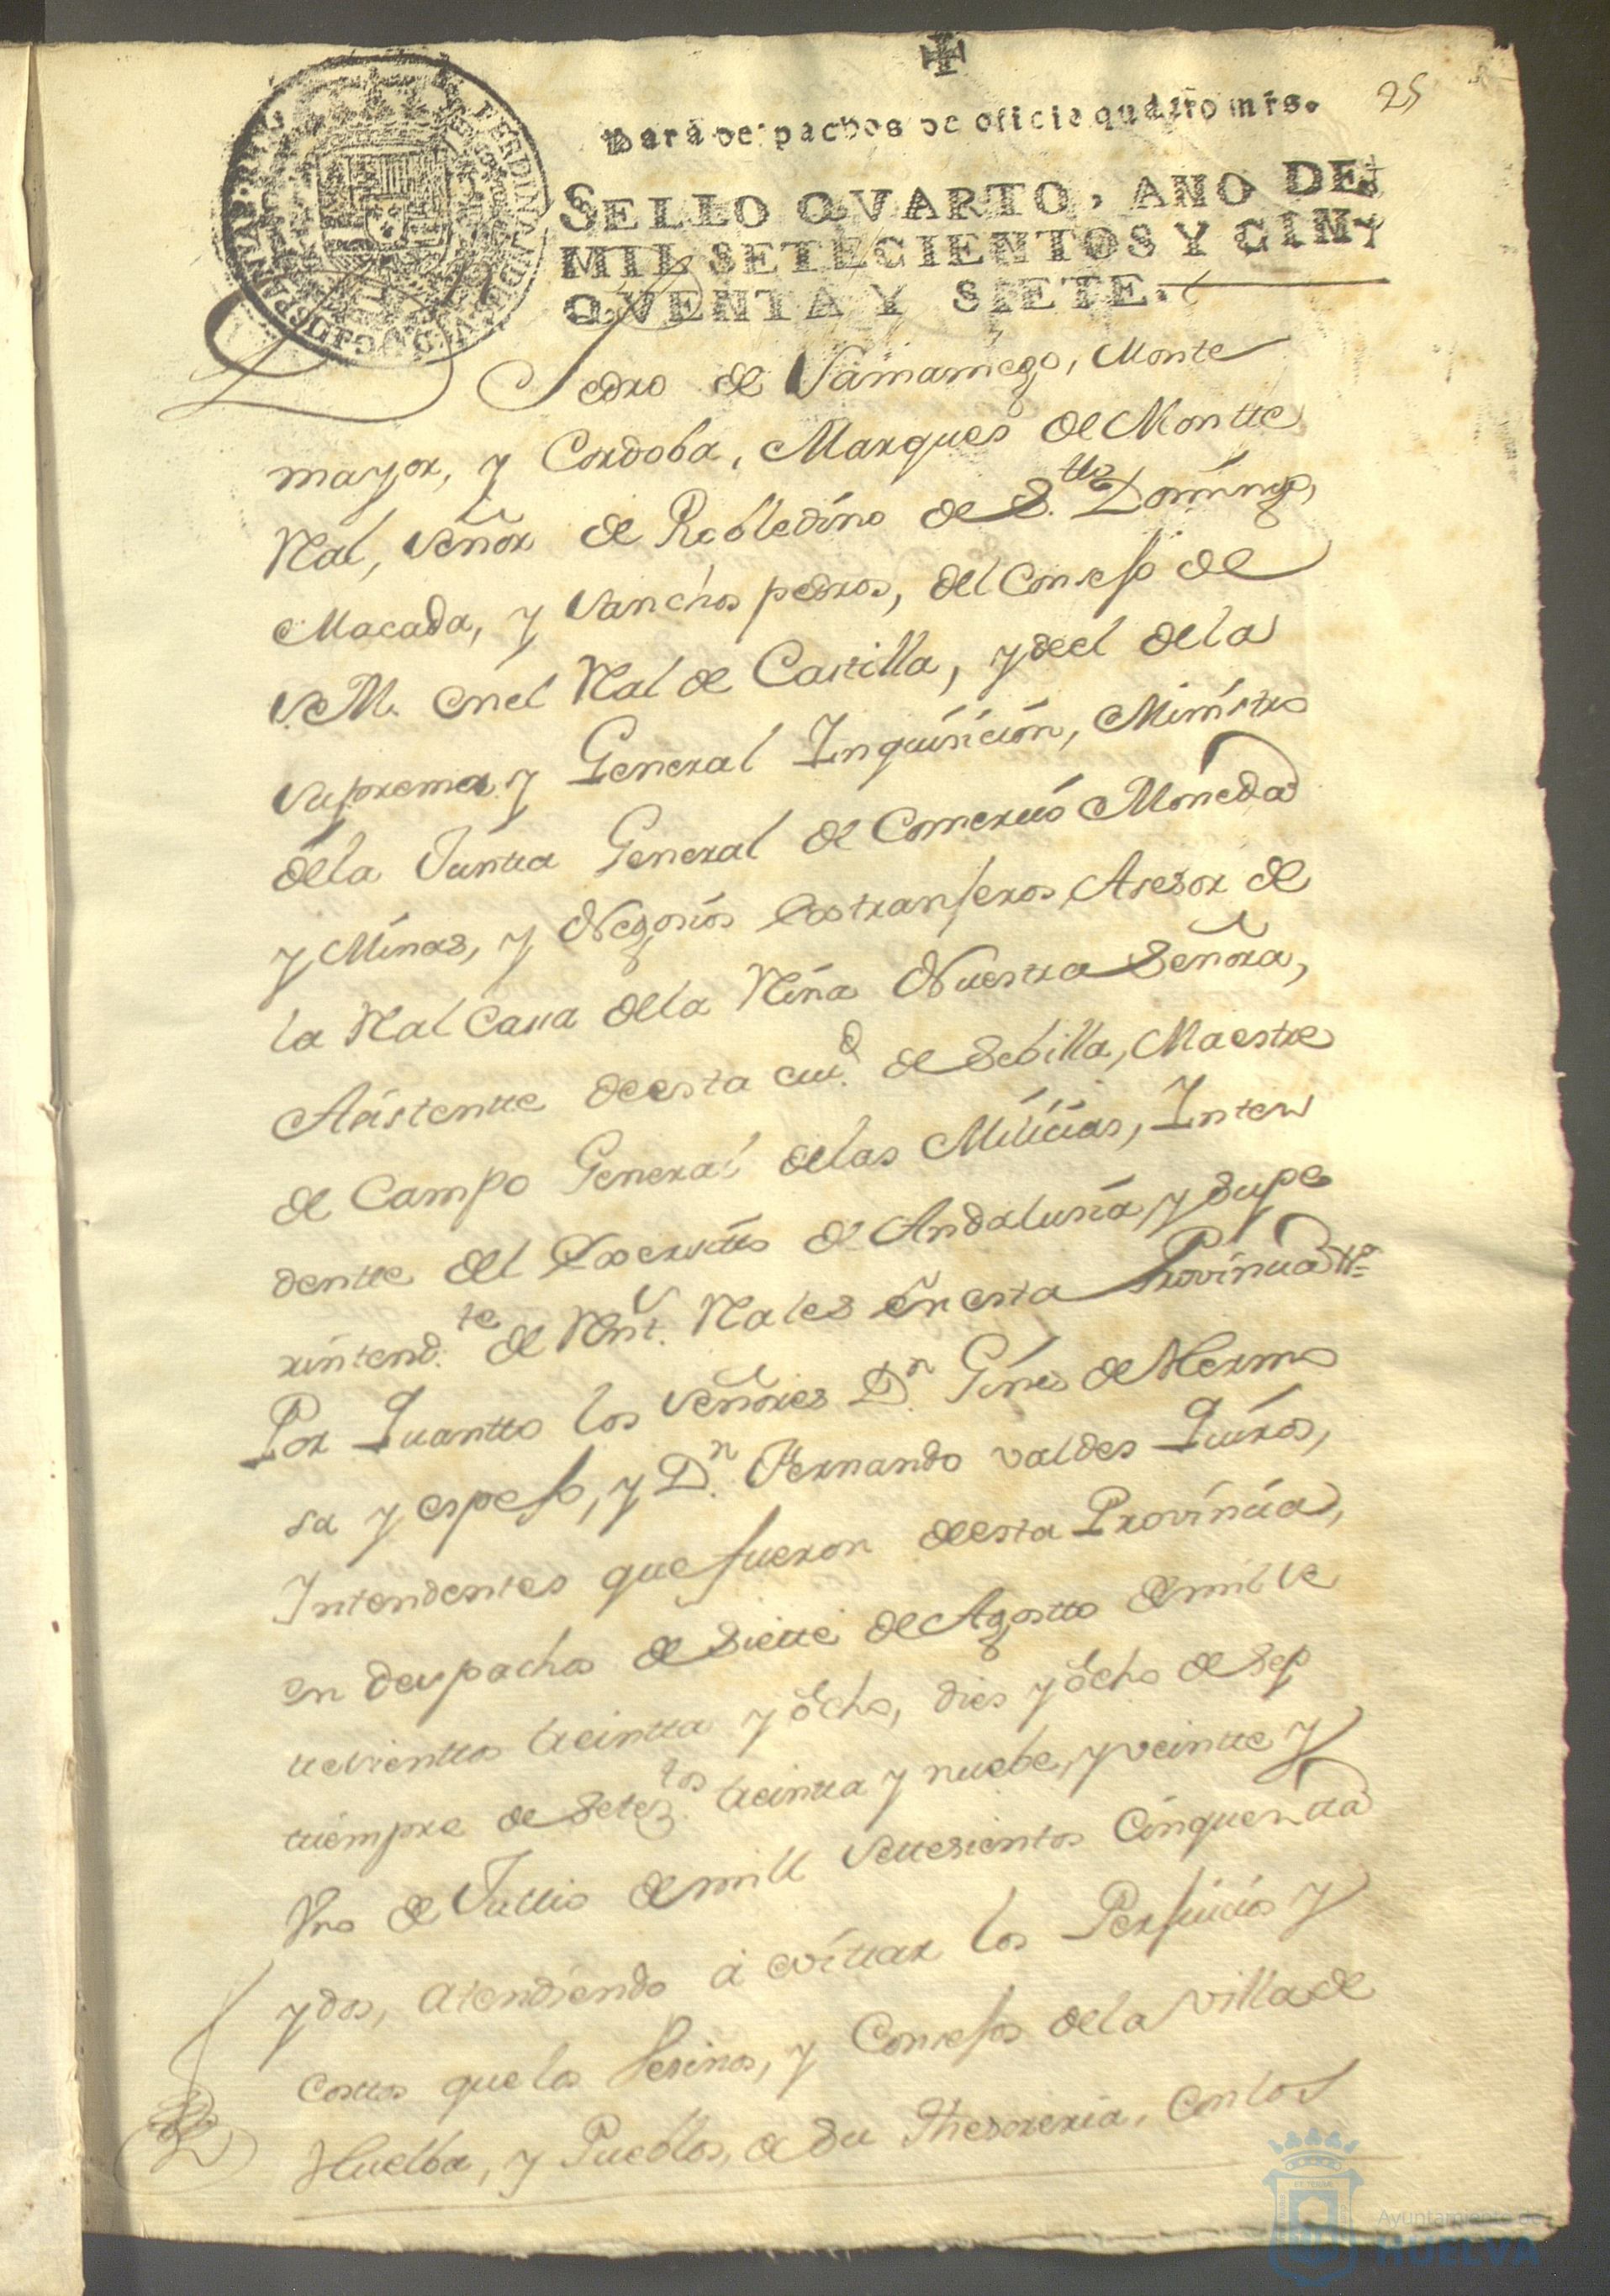 25
Para despachos de oficio quatro mrs.
SELLO QVARTO, AÑO DE
MIL SETECIENTOS Y CIN-
QVENTA Y SIETE.
Dn Pedro de Samaniego, Monte
mayor, y Cordoba, Marques de Montte
Rial, Señor de Robledino de S.tto Domingo,
Macada, y Sanchos pedros, del Consejo de
S.M. en el Rial de Castilla, y de el de la
Suprema y General Inquisición, Ministro
de la Juntta General de Comercio Moneda
y Minas, y Negosios Extranjeros, Asesor de
la Rial Cassa de la Riña Nuestra Señora,
Asistentte de esta ciu.d de Sebilla, Maestre
de Campo General de las Milicias, Inten
dentte del Exercitto de Andalusia, y Supe
rintend.te de Rent.s Riales en esta Provincia ttª
Por Quantto los Señores D.n Gines de Hermo
sa y espejo, y D.n Fernando valdes Quiros,
Intendentes que fueron de esta Provincia,
en despachos de Siette de Agostto de mil se
ttesienttos treintta y ocho, dies y ocho de Sep
ttiempre de Setez.tos treintta y nuebe, y veintte y
Vno de Jullio de mill Settesientos Cinquentta
y dos, atendiendo a evittar los Perjuicios y
costtos que los Vesinos, y Consejos de la Villa de
Huelba, y Pueblos, de su Thesoreria, con los
Ayuntamiento de
HUELVA